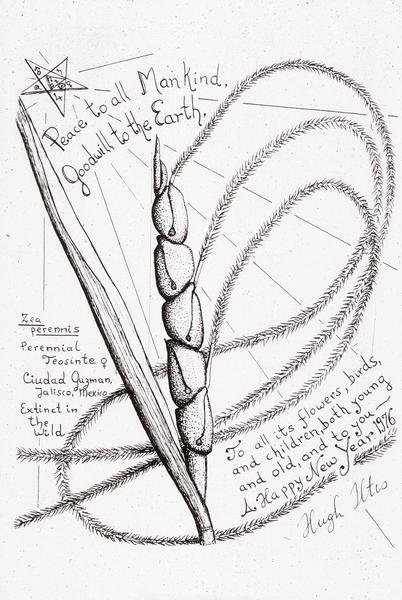 Peace to all Mankind,
Goodwill to the Earth,
Zea
perennis
Perennial
Teosinte ♀
Ciudad Guzman,
Jalisco, Mexico
Extinct in
the
wild
To all its flowers, birds,
and children, both young
and old, and to you —
A Happy New Year. 1976
Hugh Iltis